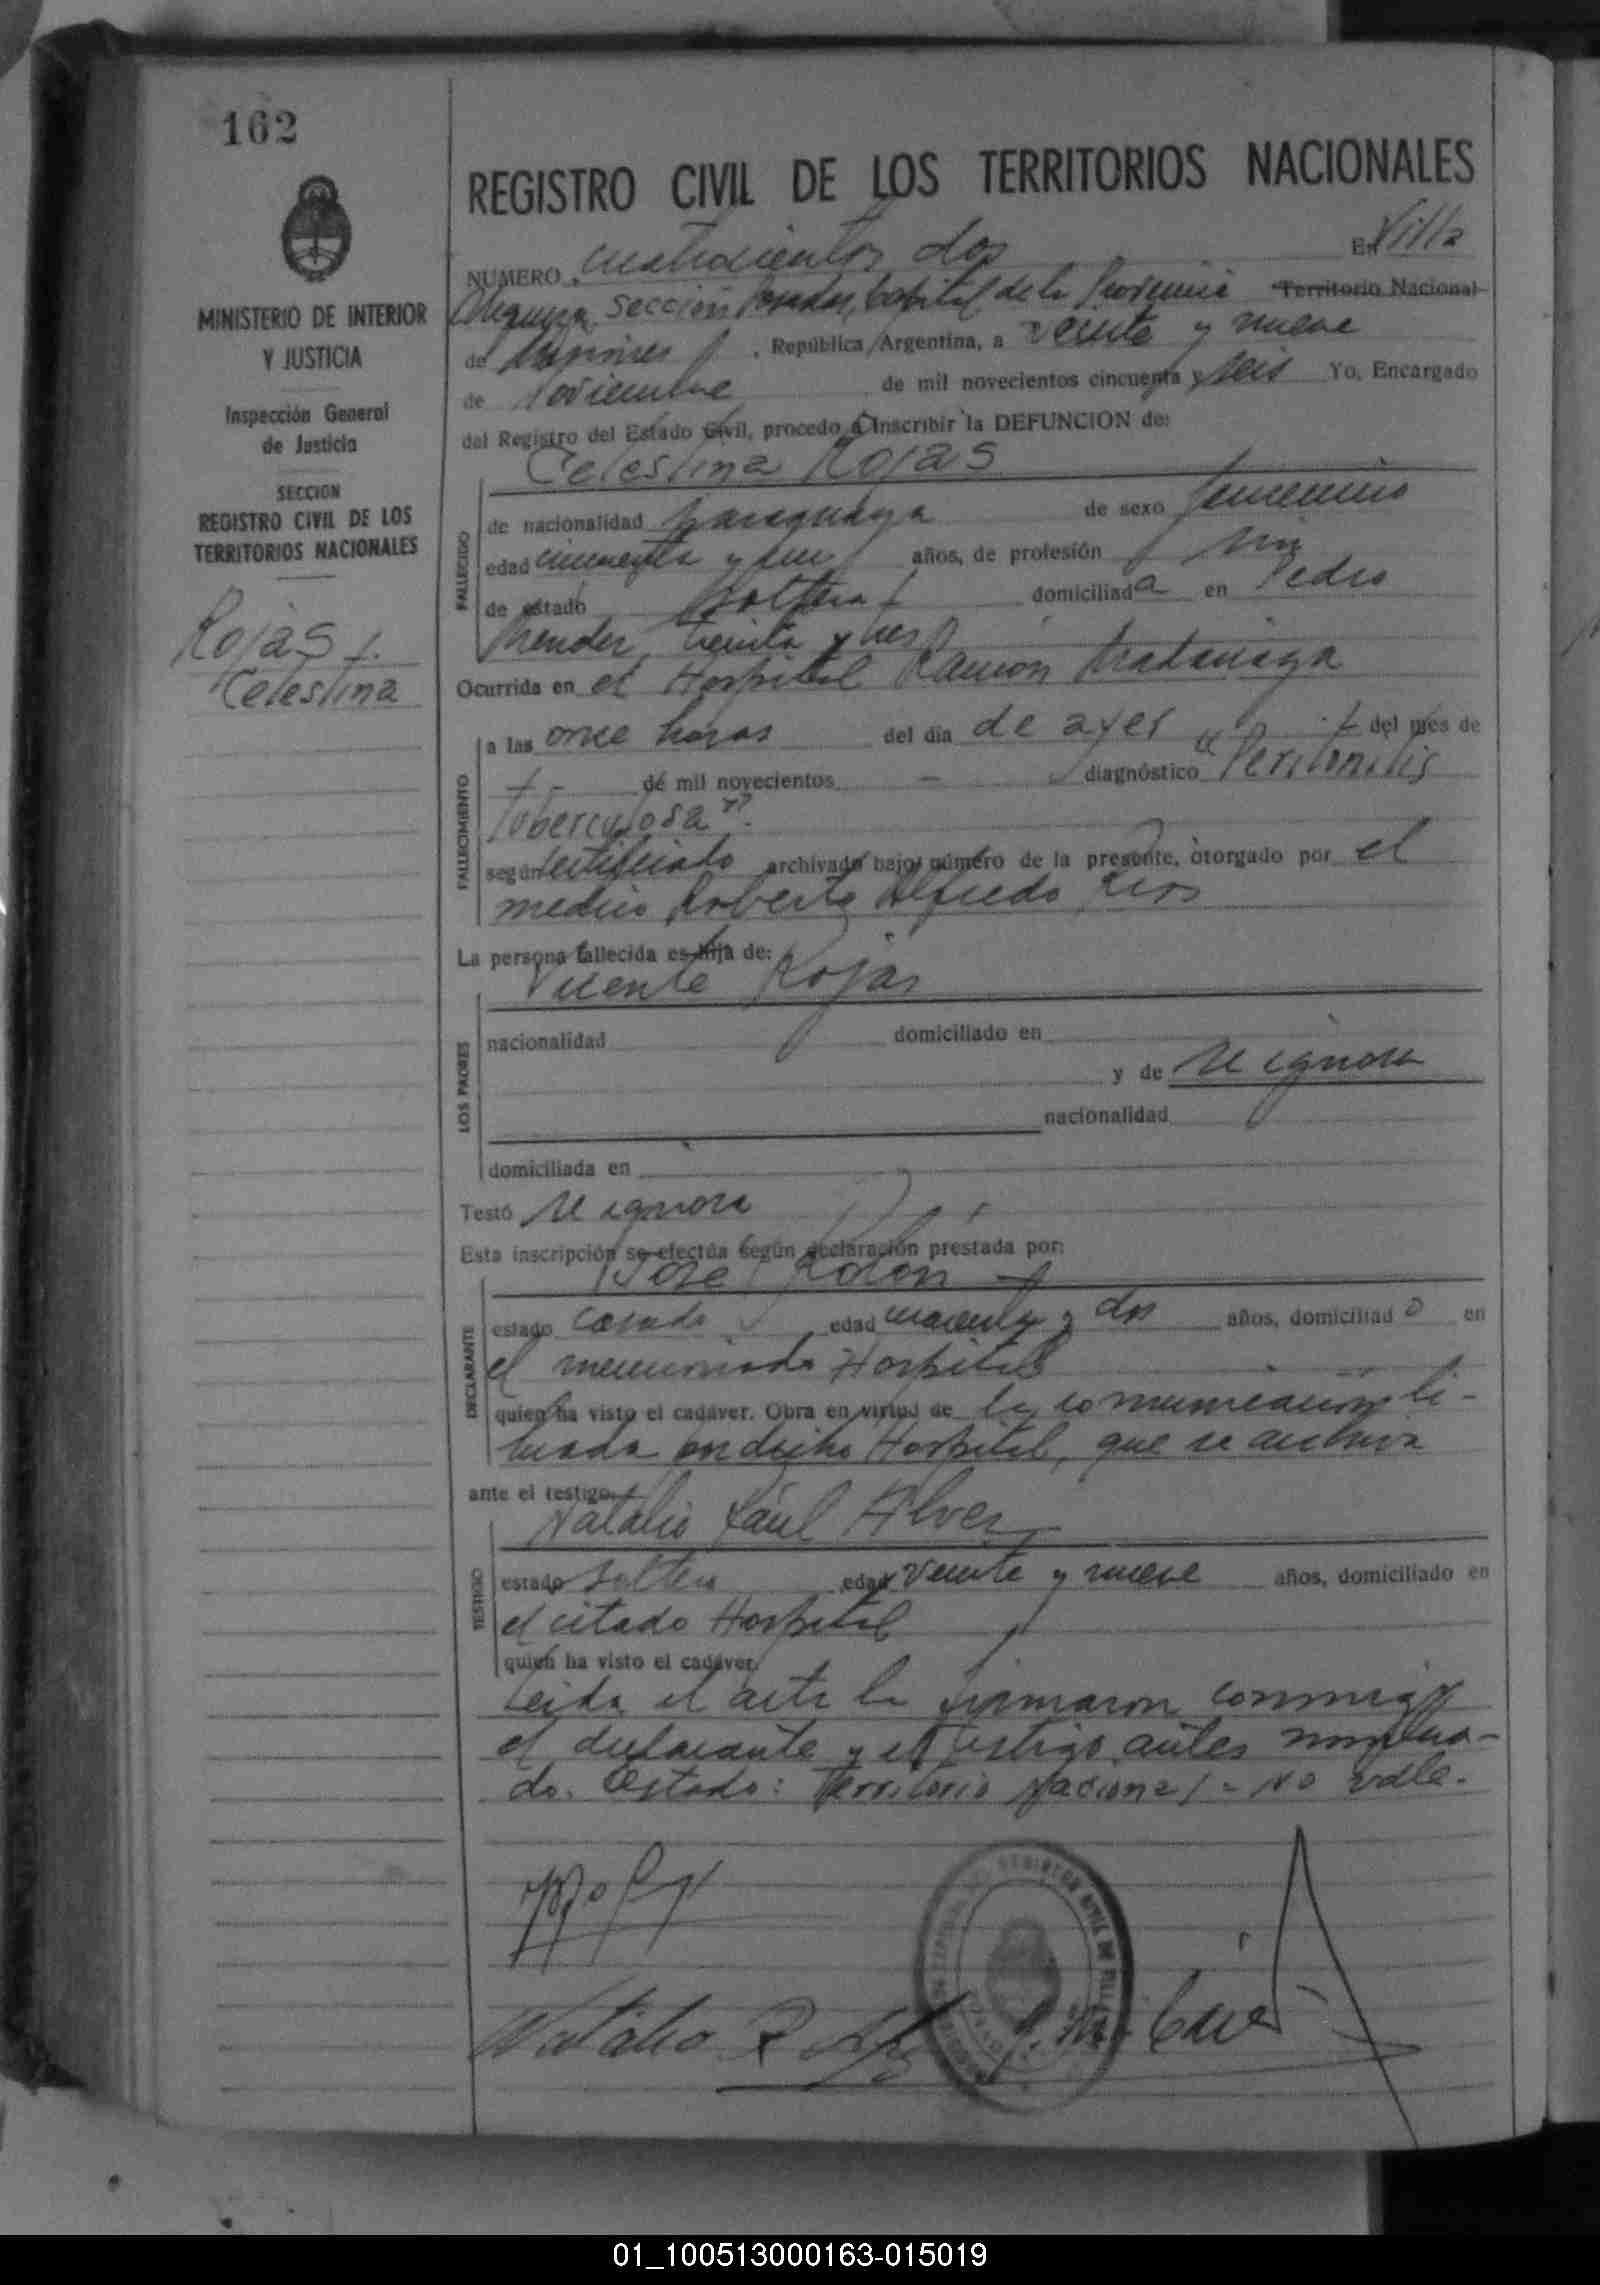 162
REGISTRO CIVIL DE LOS TERRITORIOS NACIONALES
MINISTERIO DE INTERIOR
Y JUSTICIA
Inspección General
de Justicia
SECCION
REGISTRO CIVIL DE LOS
TERRITORIOS NACIONALES
Rojas
Celestina
NUMERO cuatrocientos dos En Villa
Sección Posadas, Capital de la Provincia Territorio Nacional
de Misiones, República Argentina, a veinte y nueve
de Noviembre de mil novecientos cincuenta y seis Yo, Encargado
del Registro del Estado Civil, procedo a inscribir la DEFUNCION de:
Celestina Rojas
FALLECIDO
de nacionalidad paraguaya de sexo femenino
edad cincuenta y un años, de profesión
de estado soltera domiciliada en Pedro
Mendez treinta y tres
Ocurrida en el Hospital Ramón Madariaga
FALLECIMIENTO
a las once horas del día de ayer del mes de
de mil novecientos - diagnóstico "Peritonitis
tuberculosa".
según certificado archivado bajo número de la presente, otorgado por el
medico Roberto Alfredo Rios
La persona fallecida es hija de:
Vicente Rojas
LOS PADRES
nacionalidad domiciliado en
y de se ignora
nacionalidad
domiciliada en
Testó se ignora
Esta inscripción se efectúa según declaración prestada por:
José Rolon
DECLARANTE
estado casado edad cuarenta y dos años, domiciliado en
el mencionado Hospital
quien ha visto el cadáver. Obra en virtud de la comunicación li-
brada en dicho Hospital, que se archiva
ante el testigo
Natalio Raúl Alvez
TESTIGO
estado soltero edad veinte y nueve años, domiciliado en
el citado Hospital
quien ha visto el cadáver.
Leida el acta la firmaron conmigo
el declarante y el testigo antes nombra-
do. Testado: Territorio Nacional = No vale.
Natalio R
01_100513000163-015019